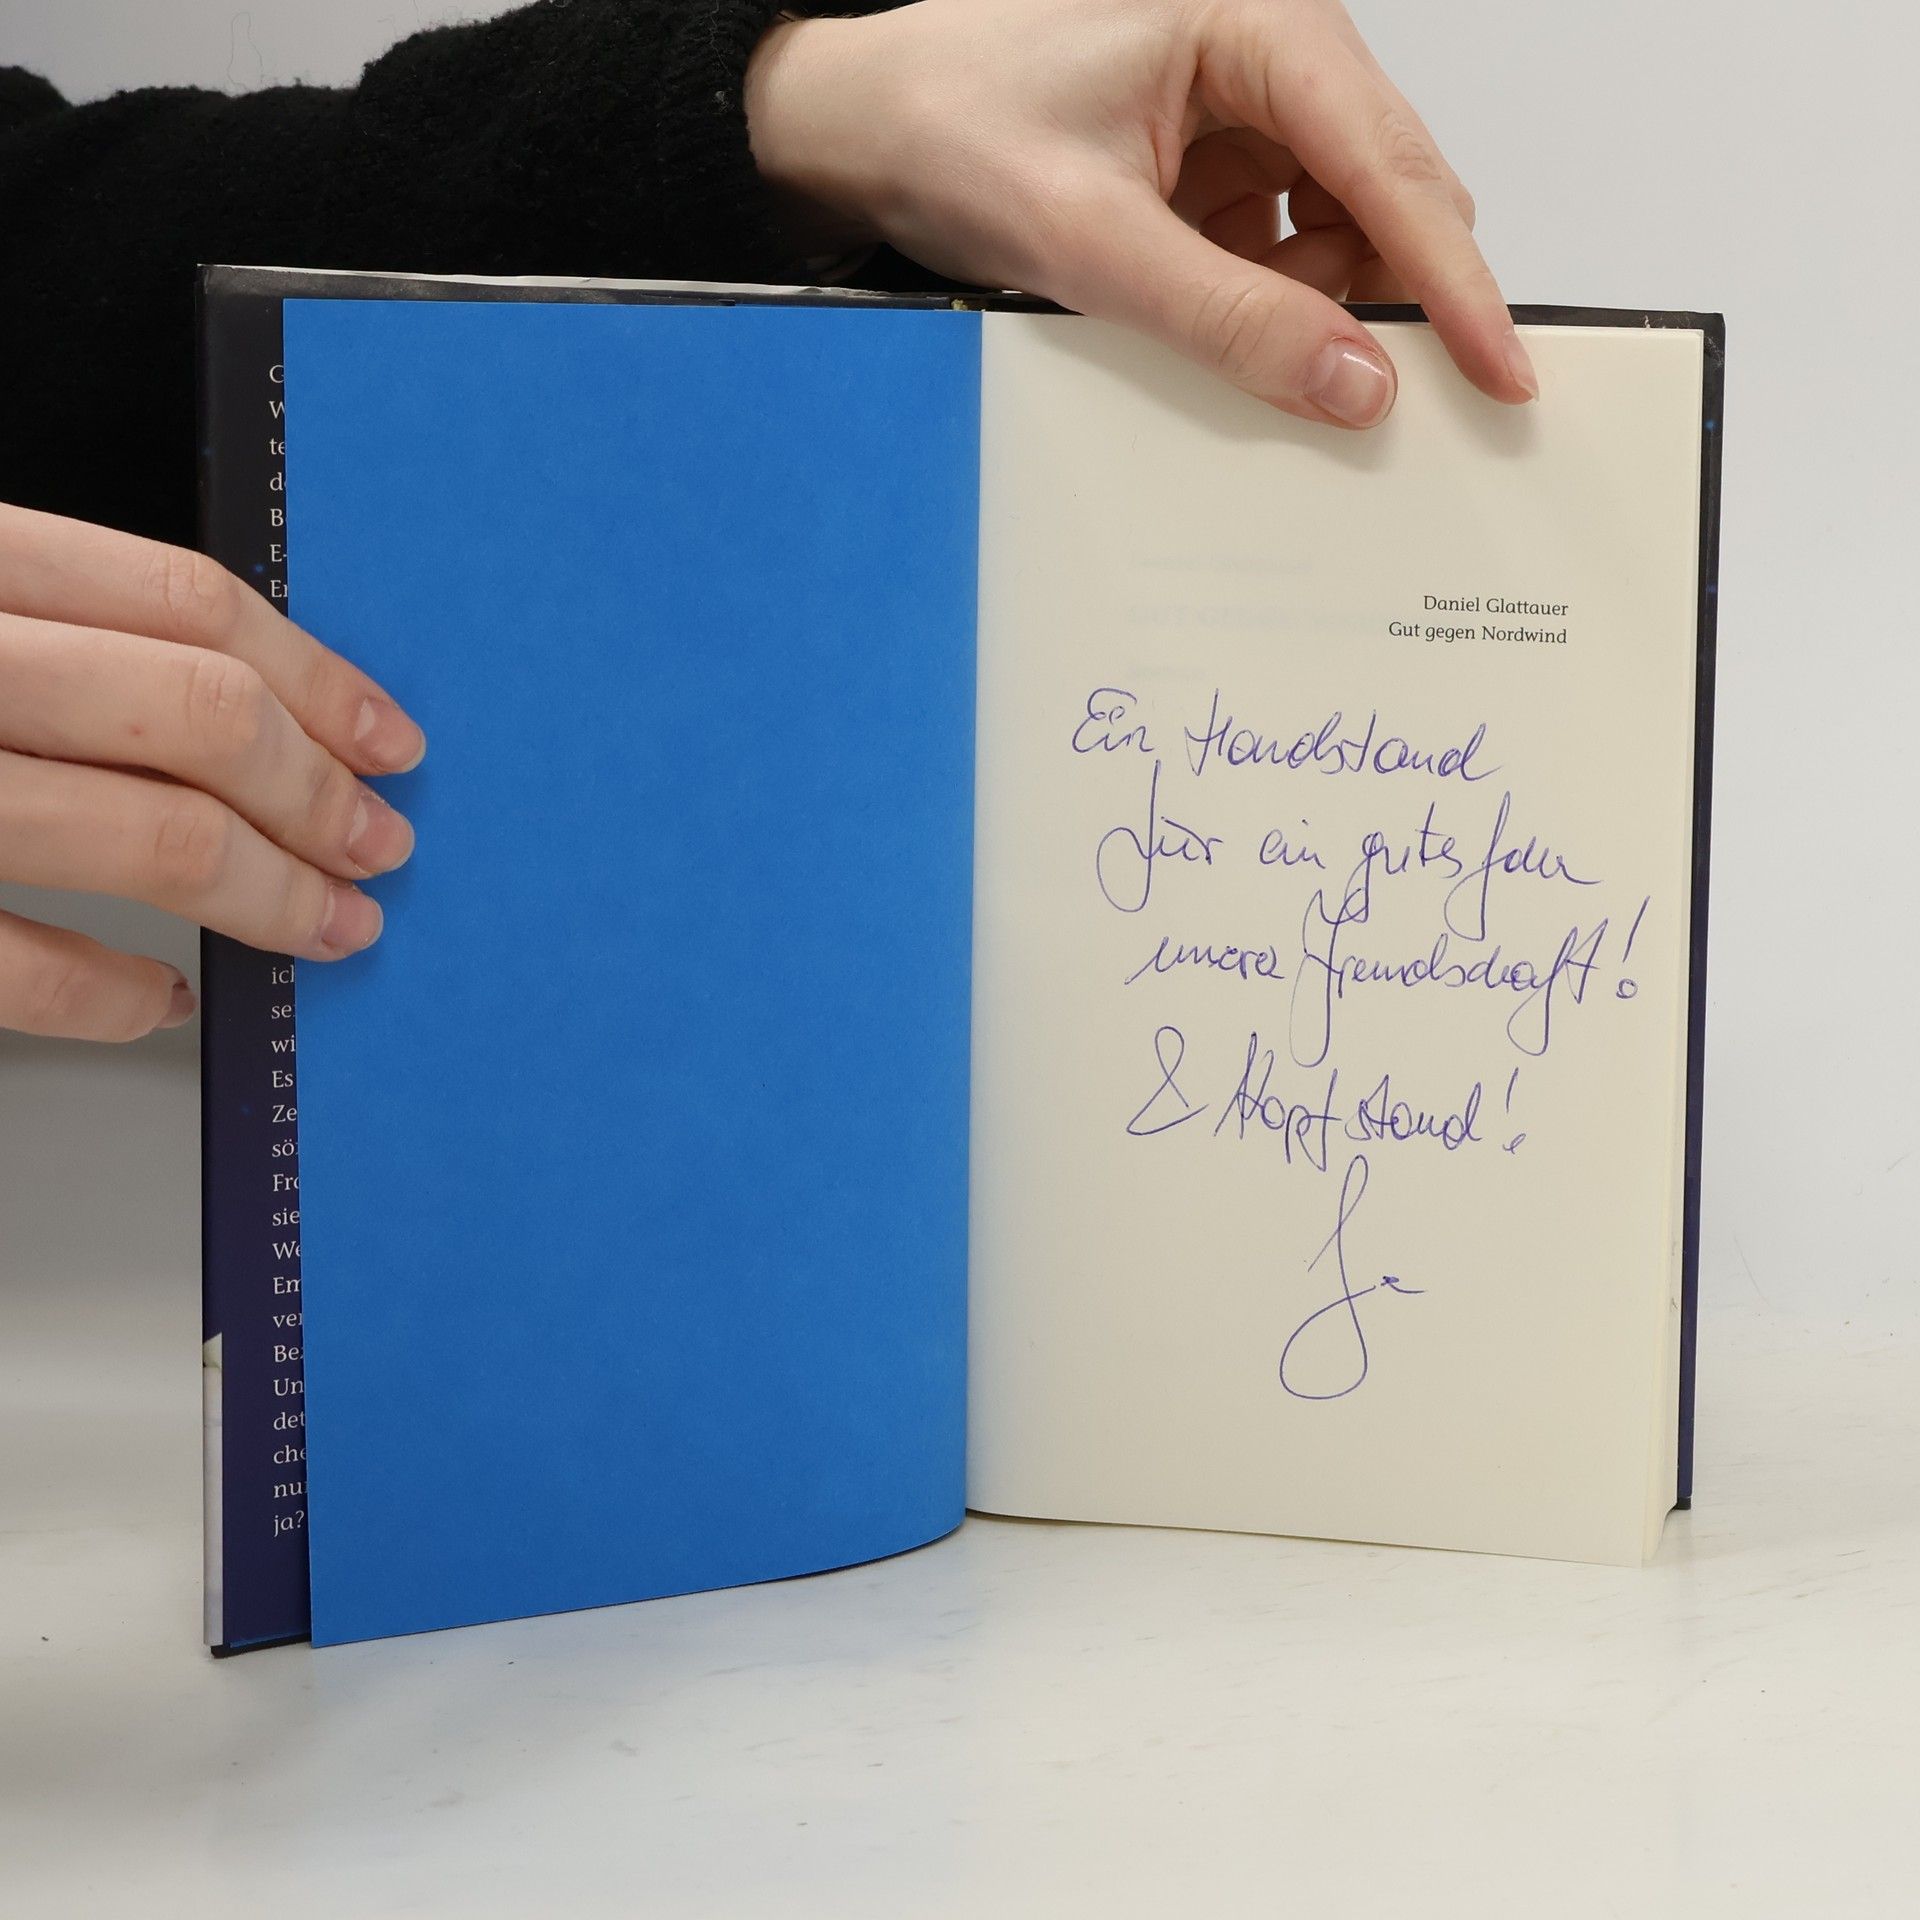 G
W
te
de
B
E-
Er
ich
se
wi
Es
Ze
sö
Fro
sie
We
Em
ver
Bez
Un
det
che
nu
ja?
Daniel Glattauer
Gut gegen Nordwind
Ein Handstand
für ein gutes
unsere Freundschaft!
& Kopfstand!